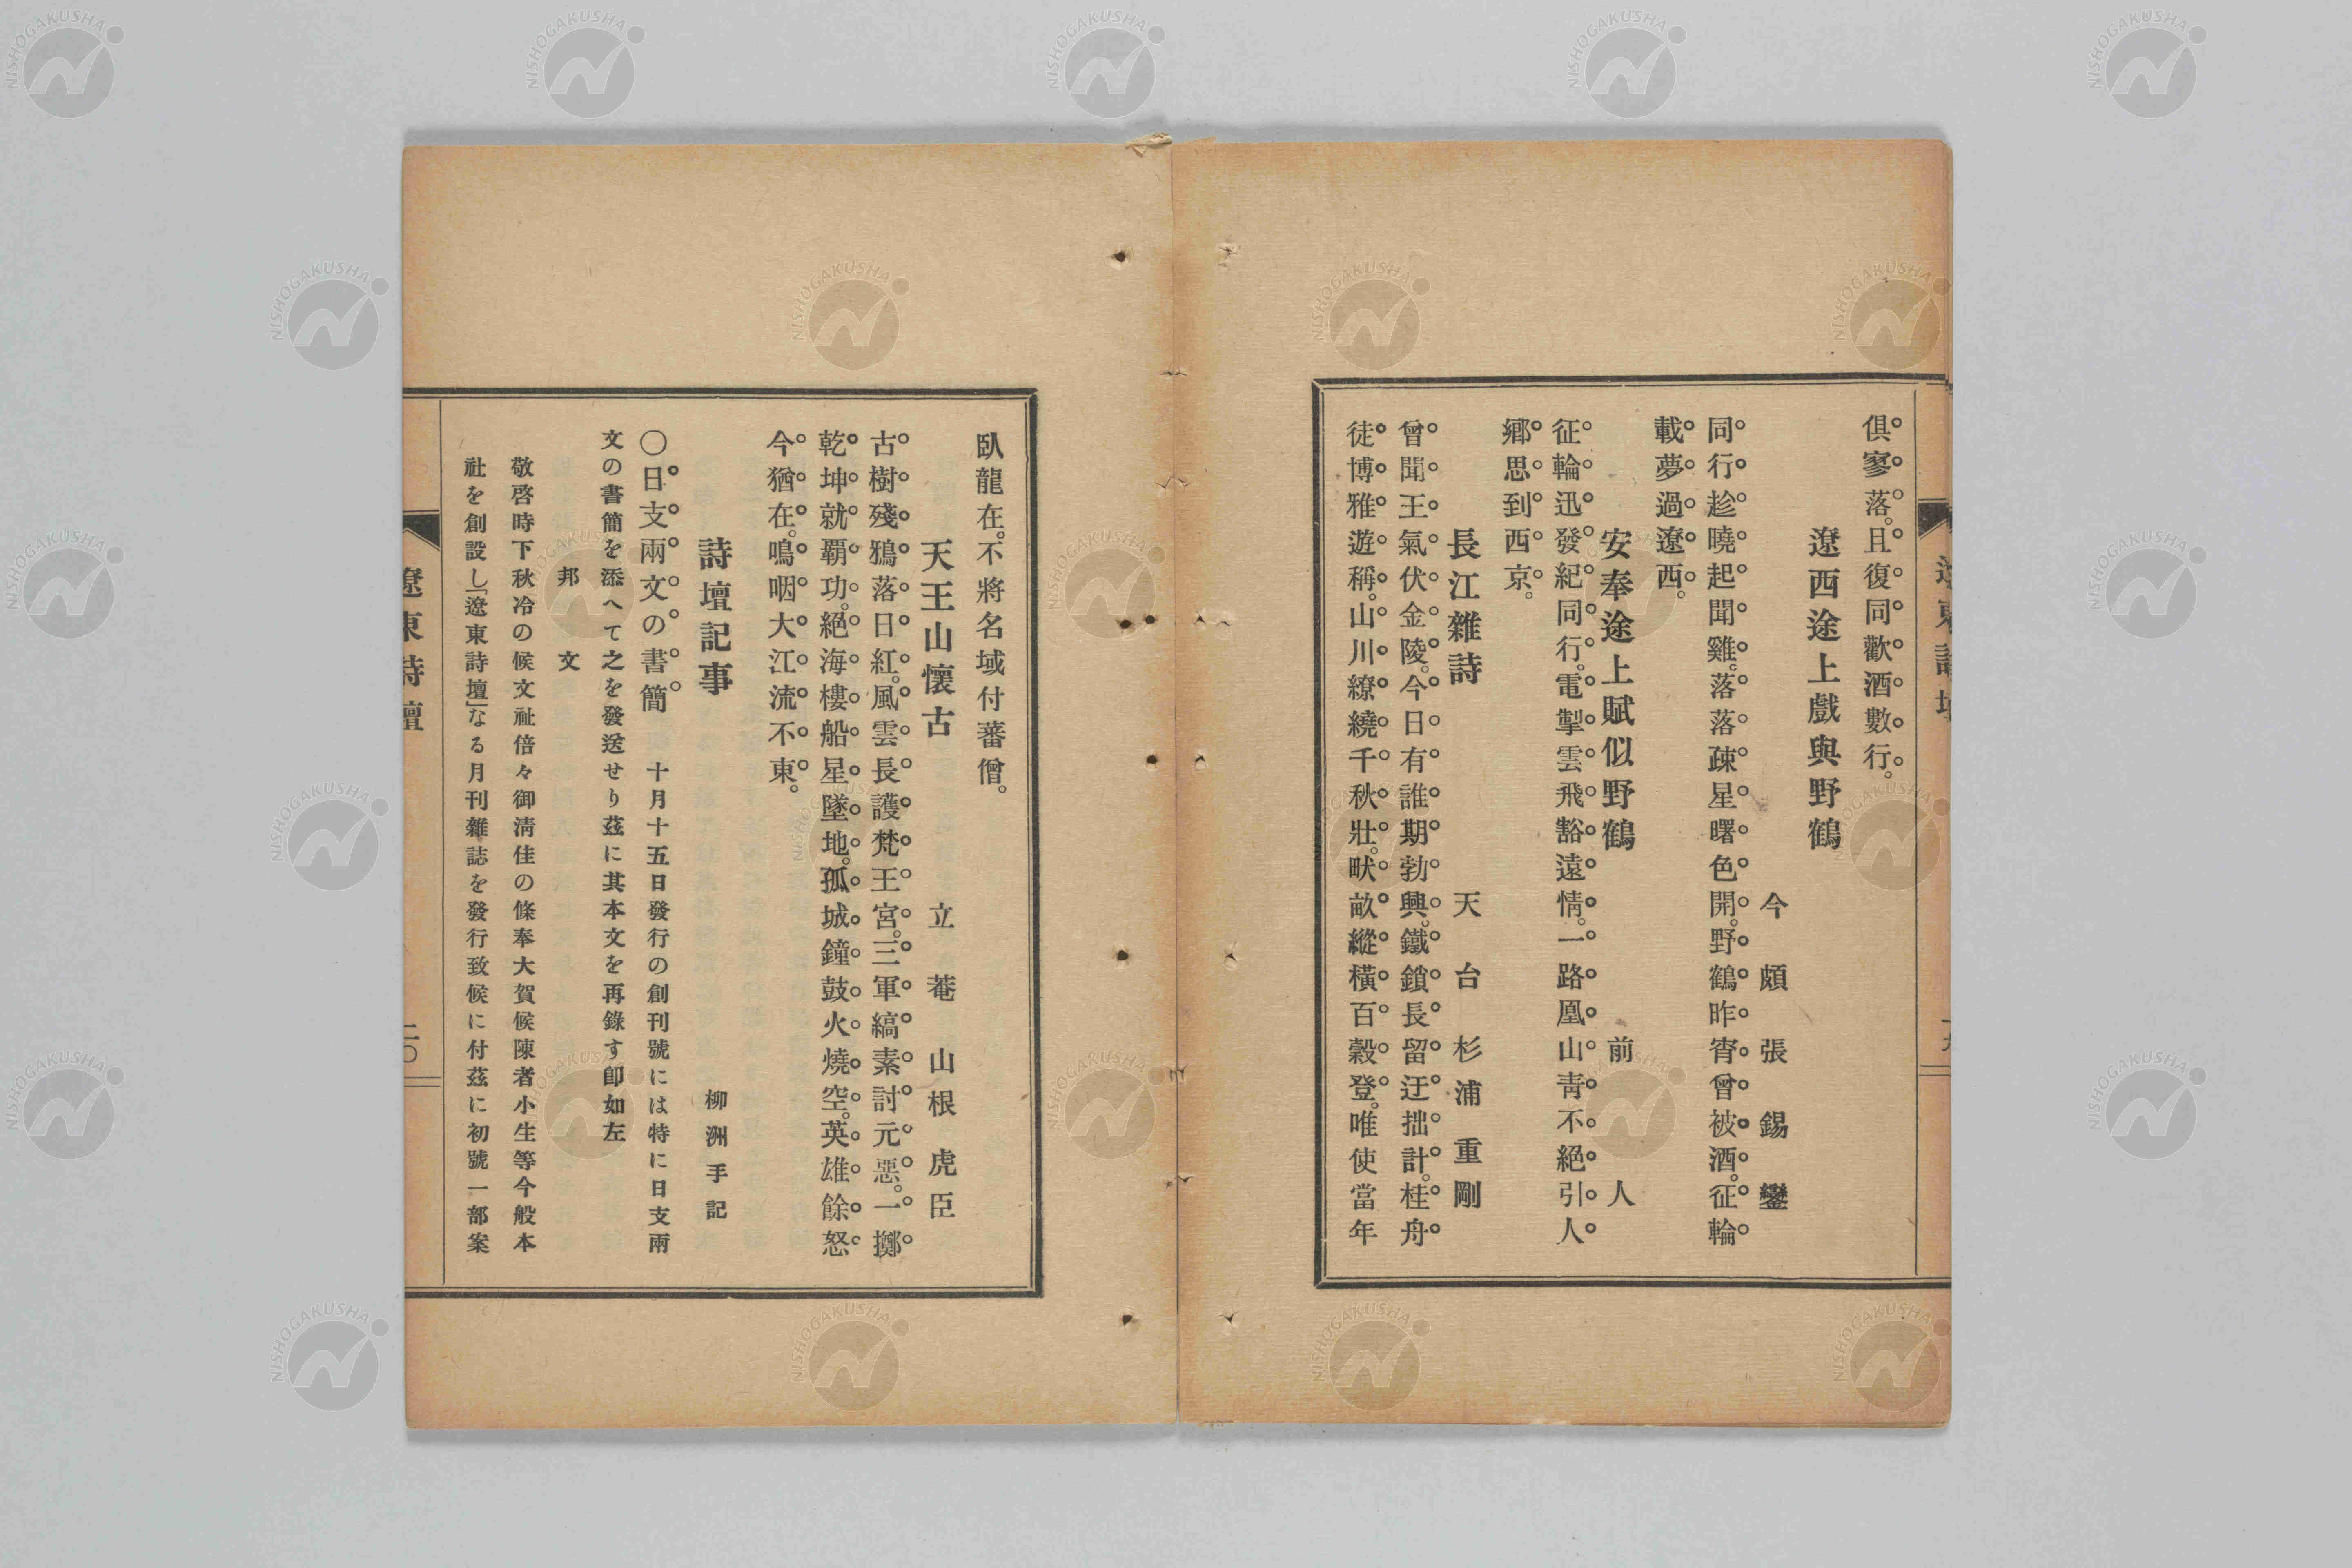 遼東詩壇
一九
俱寥落。且復同歡酒數行。
遼西途上戲與野鶴
今頗 張錫鑾
同行趁曉起聞雞。落落疎星曙色開。野鶴昨宵曾被酒。征輪
載夢過遼西。
安奉途上賦似野鶴
前人
征輪迅發紀同行。電掣雲飛豁遠情。一路凰山靑不絕引人
鄉思到西京。
長江雜詩
天台 杉浦重剛
曾聞王氣伏金陵。今日有誰期勃興。鐵鎖長留迂拙計。桂舟
徒博雅遊稱。山川繚繞千秋壯。畎畝縱橫百穀登。唯使當年
臥龍在。不將名域付蕃僧。
天王山懷古
立菴 山根虎臣
古樹殘鴉落日紅。風雲長護梵王宮。三軍縞素討元惡。一擲
乾坤就覇功。絕海樓船星墜地。孤城鐘鼓火燒空。英雄餘怒
今猶在。鳴咽大江流不東。
詩壇記事
柳洲手記
〇日支兩文の書簡 十月十五日發行の創刊號には特に日支兩
文の書簡を添へて之を發送せり茲に其本文を再錄す卽如左
邦文
敬啓時下秋冷の候文祉倍々御淸佳の條奉大賀候陳者小生等今般本
社を創設し「遼東詩壇」なる月刊雜誌を發行致候に付茲に初號一部案
遼東詩壇
二〇
NISHOGAKUSHA